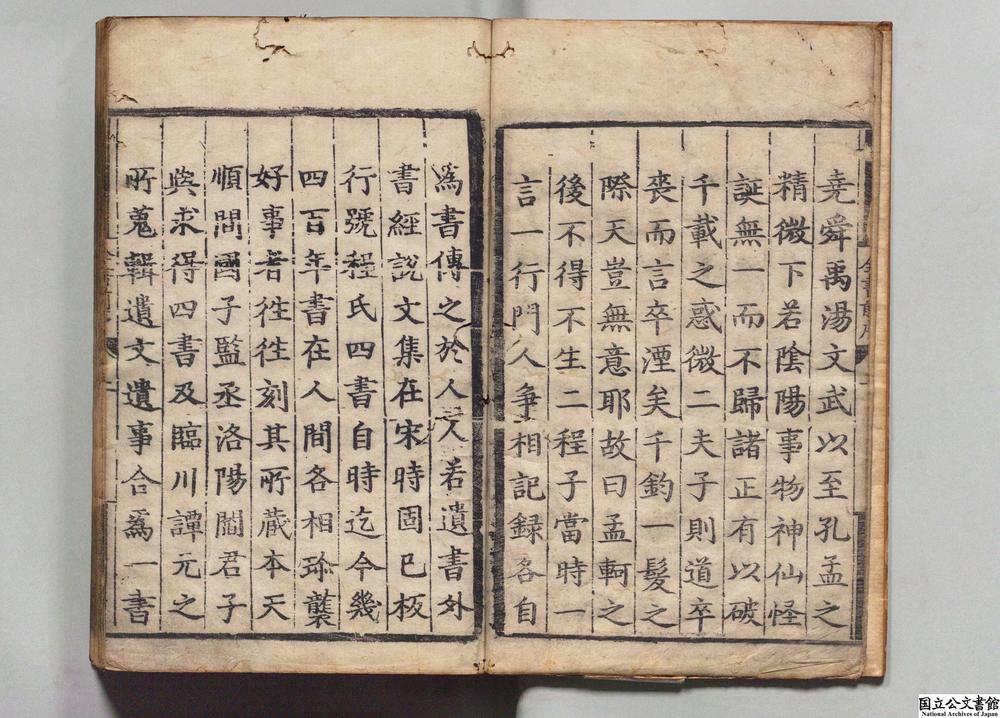 堯舜禹湯文武以至孔孟之
精微下若陰陽事物神仙怪
誕無一而不歸諸正有以破
千載之惑微二夫子則道卒
喪而言卒湮矣千鈞一髮之
際天豈無意耶故曰孟軻之
後不得不生二程子當時一
言一行門人爭相記録各自
爲書傳之於人人若遺書外
書經說文集在宋時固已板
行號程氏四書自時迄今幾
四百年書在人間各相珎襲
好事者徃徃刻其所藏本天
順間國子監丞洛陽閻君子
與求得四書及臨川譚元之
所蒐輯遺文遺事合爲一書
国立公文書館
National Archives of Japan